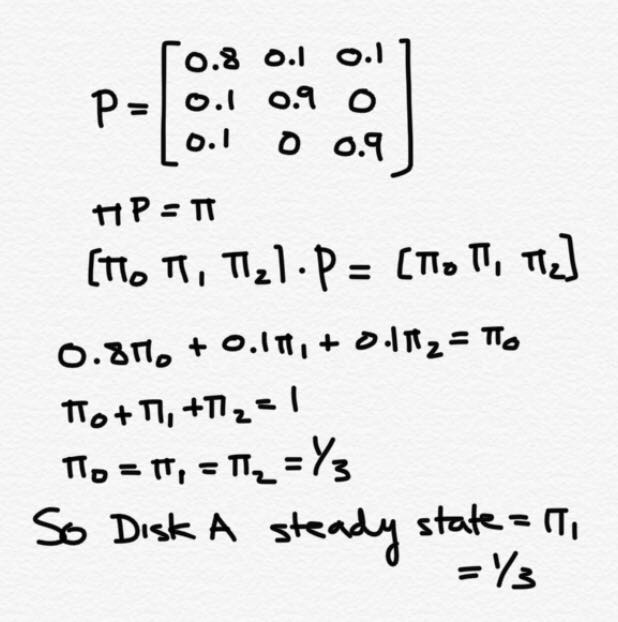 P = [0.8 0.1 0.1
0.1 0.9 0
0.1 0 0.9]
πP = π
[π₀ π₁ π₂] · P = [π₀ π₁ π₂]
0.8π₀ + 0.1π₁ + 0.1π₂ = π₀
π₀ + π₁ + π₂ = 1
π₀ = π₁ = π₂ = 1/3
So Disk A steady state = π₁
= 1/3